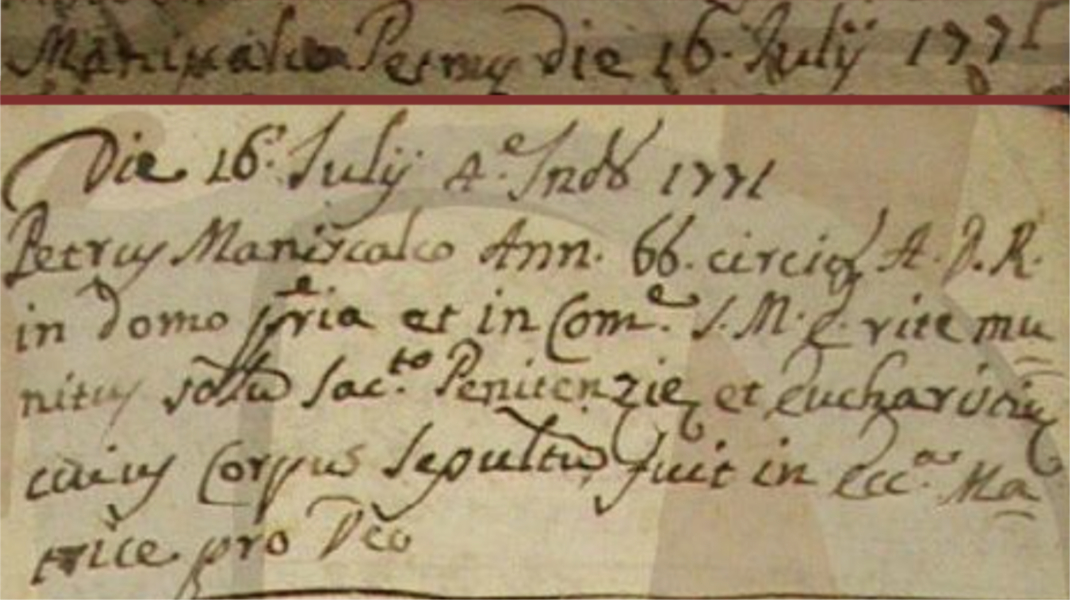 Maniscalco Petrus die 16. Julij 1771
Die 16. Julij 4.e Ind. 1771
Petrus Maniscalco Ann. 66. circiter A. D. R.
in domo ppria et in Com.e S. M. E. rite mu
nitus solu Sac.to Penitenzie et eucharistie
cuius Corpus sepultu fuit in Ecc.a Ma
trice pro Deo